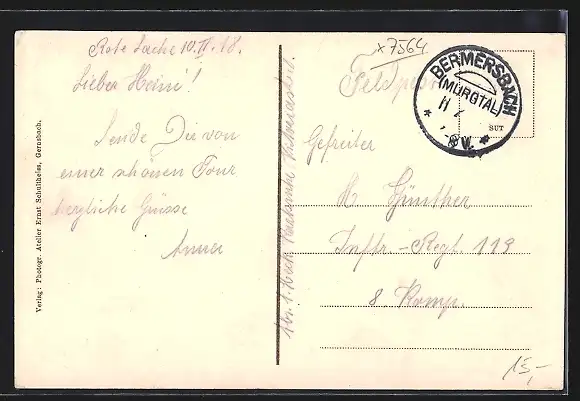 Rote Lache 10.II.18.
Lieber Heini!
Sende Dir von
einer schönen Tour
herzliche Grüsse
Verlag: Photogr. Atelier Ernst Schultheiss, Gernsbach.
x7564
Feldpost
BERMERSBACH
(MURGTAL)
SUT
Gefreiter
H. Günther
Inftr.-Regt. 113
8. Komp.
15,-